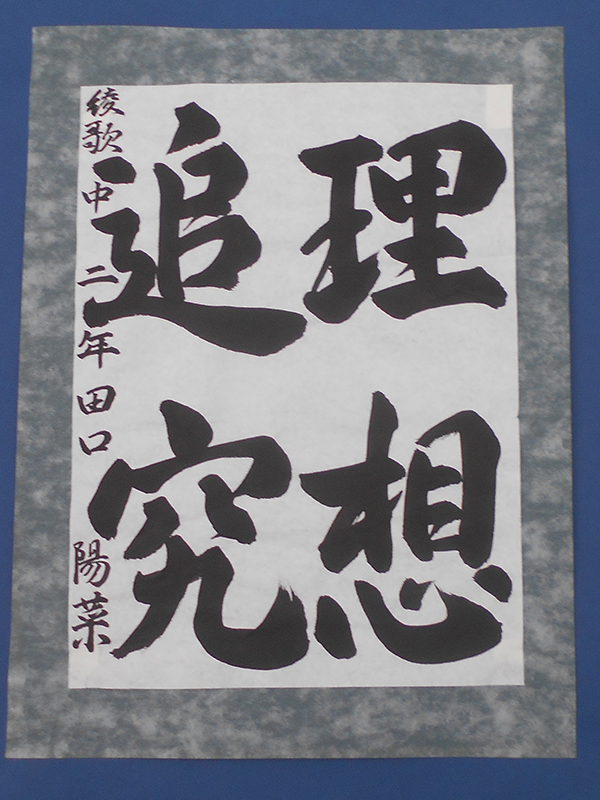 理想
追究
綾歌中二年田口陽菜